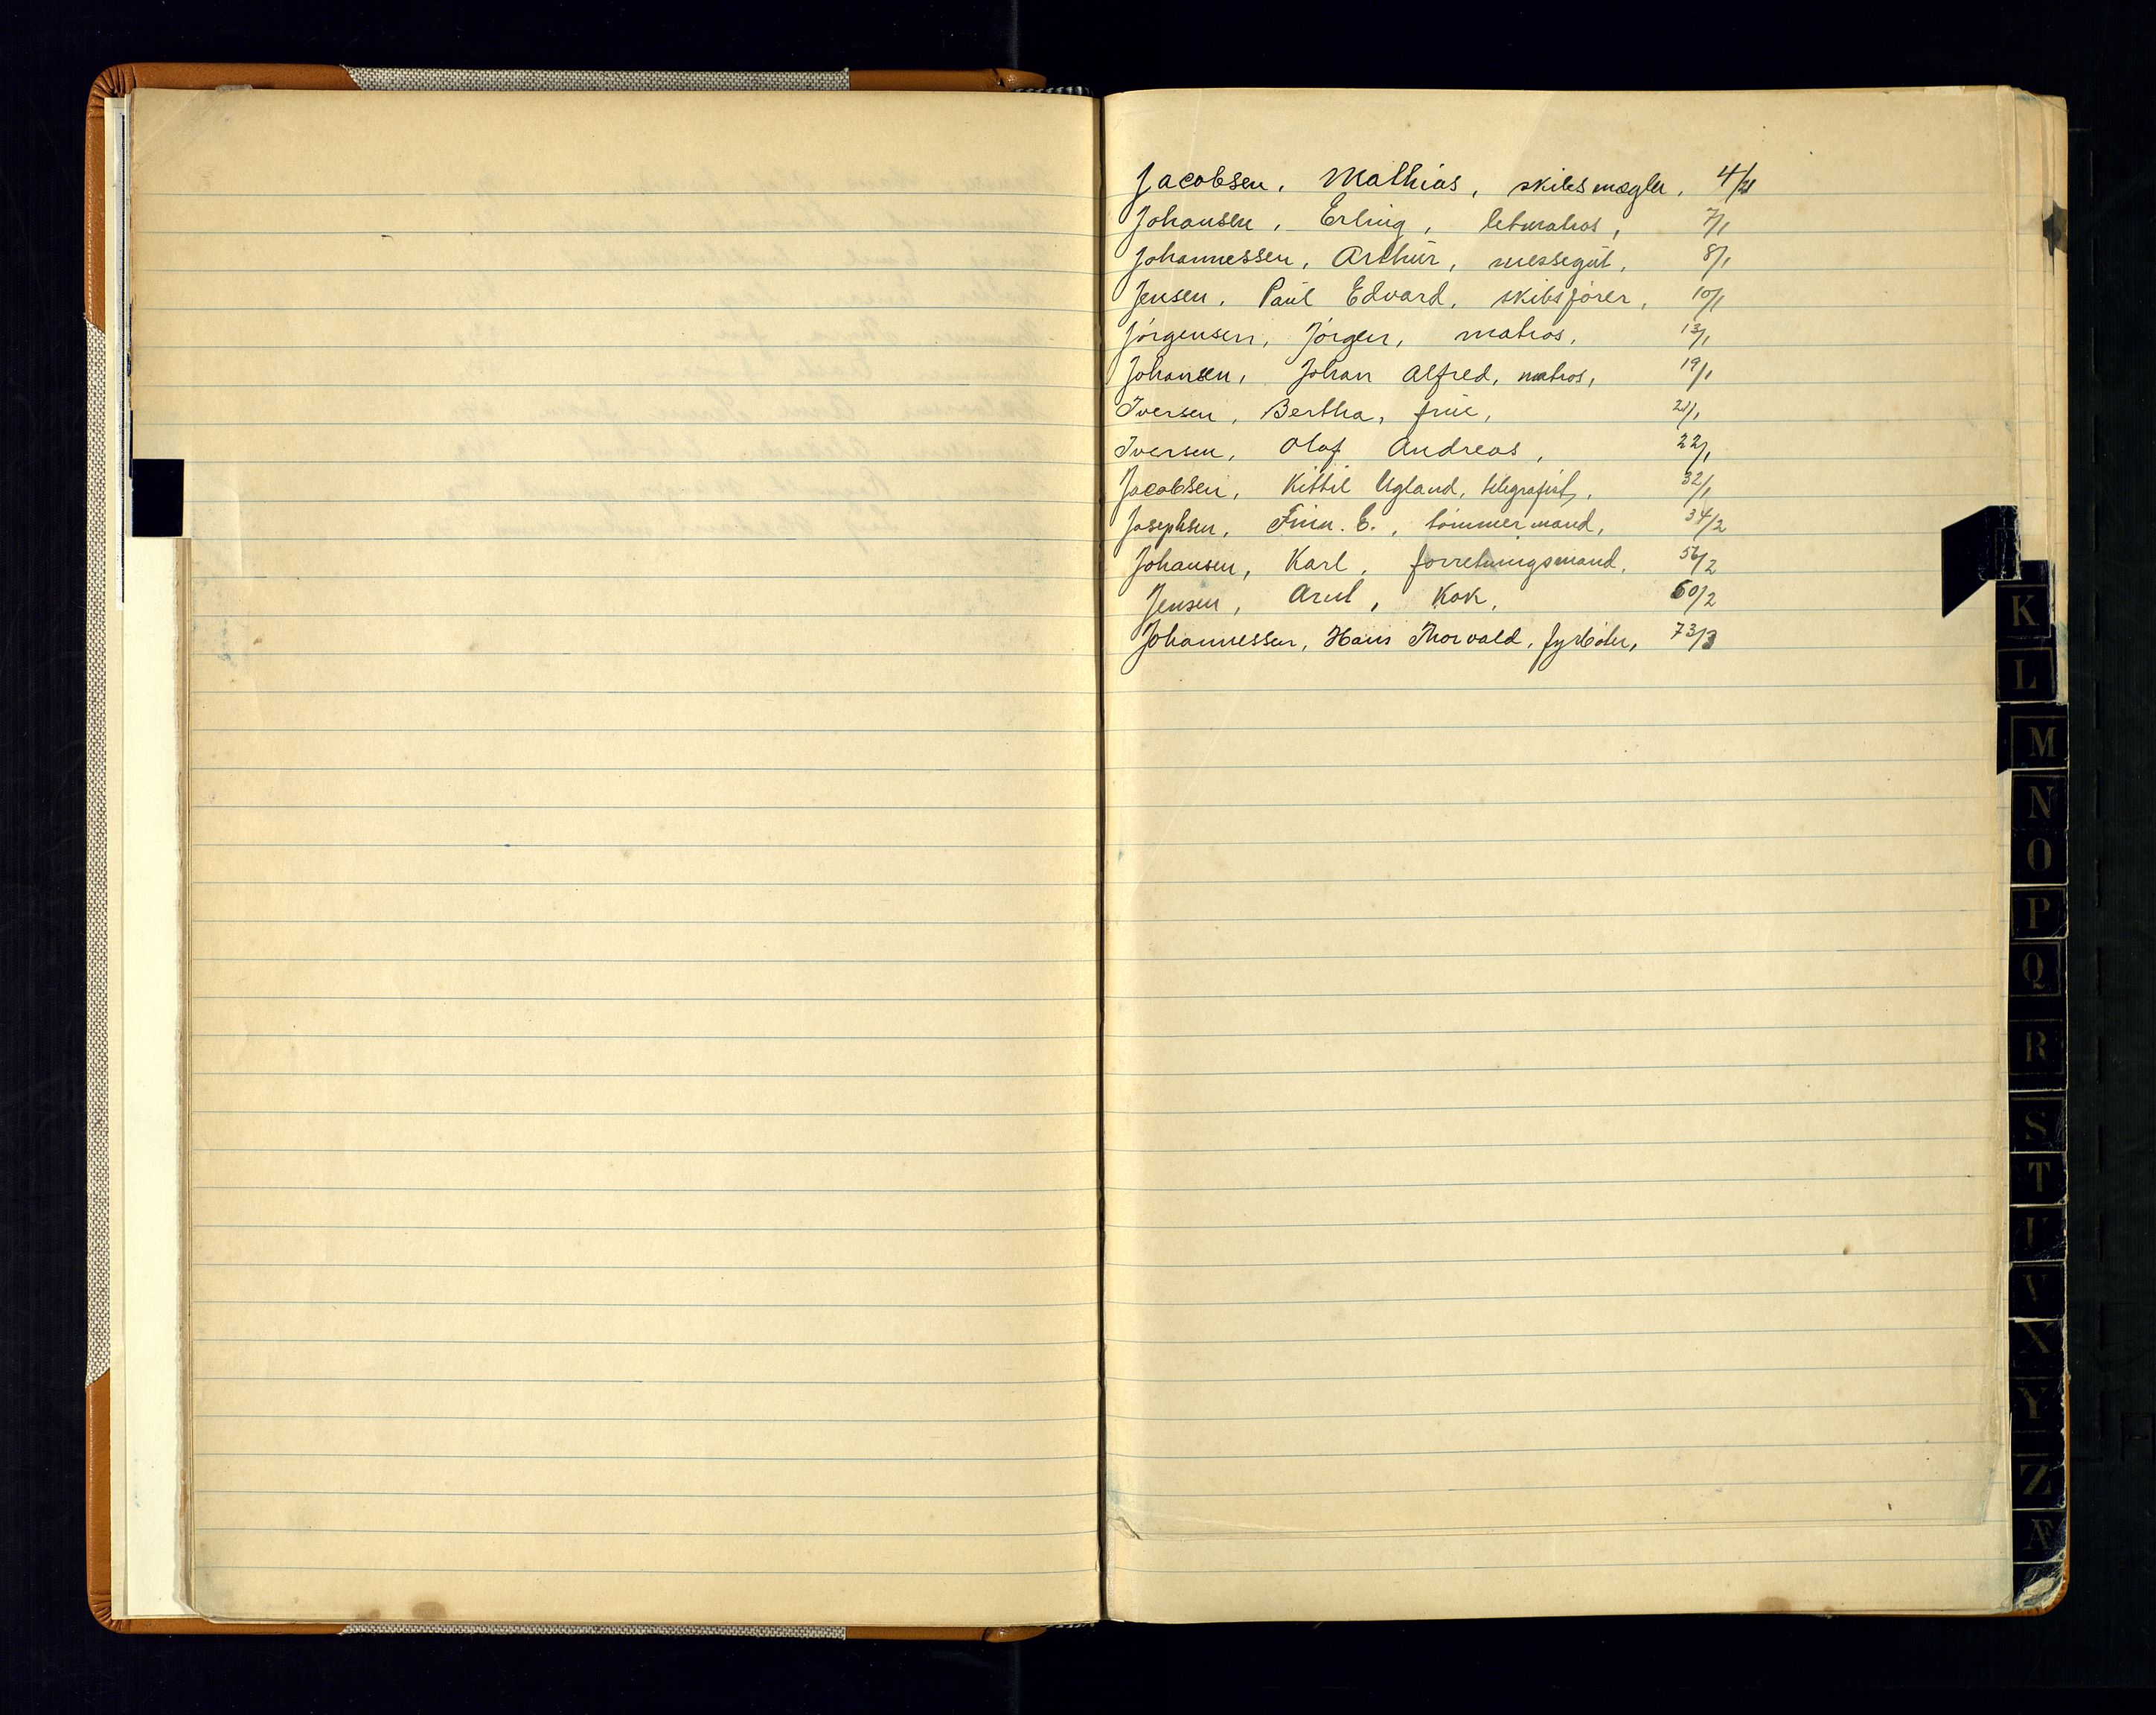 Jacobsen, Mathias, skibsmægler, 4/
Johansen, Erling, letmatros, 7/1
Johannessen, Arthur, messegut, 8/1
Jensen, Paul Edvard, skibsfører, 10/1
Jörgensen, Jörgen, matros, 13/1
Johansen, Johan Alfred, matros, 19/1
Iversen, Bertha, frue, 21/1
Iversen, Olaf Andreas, 22/1
Jacobsen, Kittil Ugland, telegrafist, 32/1
Josephsen, Finn. E., tömmermand, 34/2
Johansen, Karl, forretningsmand, 56/2
Jensen, Arnt, Kok, 60/2
Johannessen, Hans Thorvald, fyrböter, 73/3
K
L
M
N
O
P
Q
R
S
T
U
V
X
Y
Z
Æ